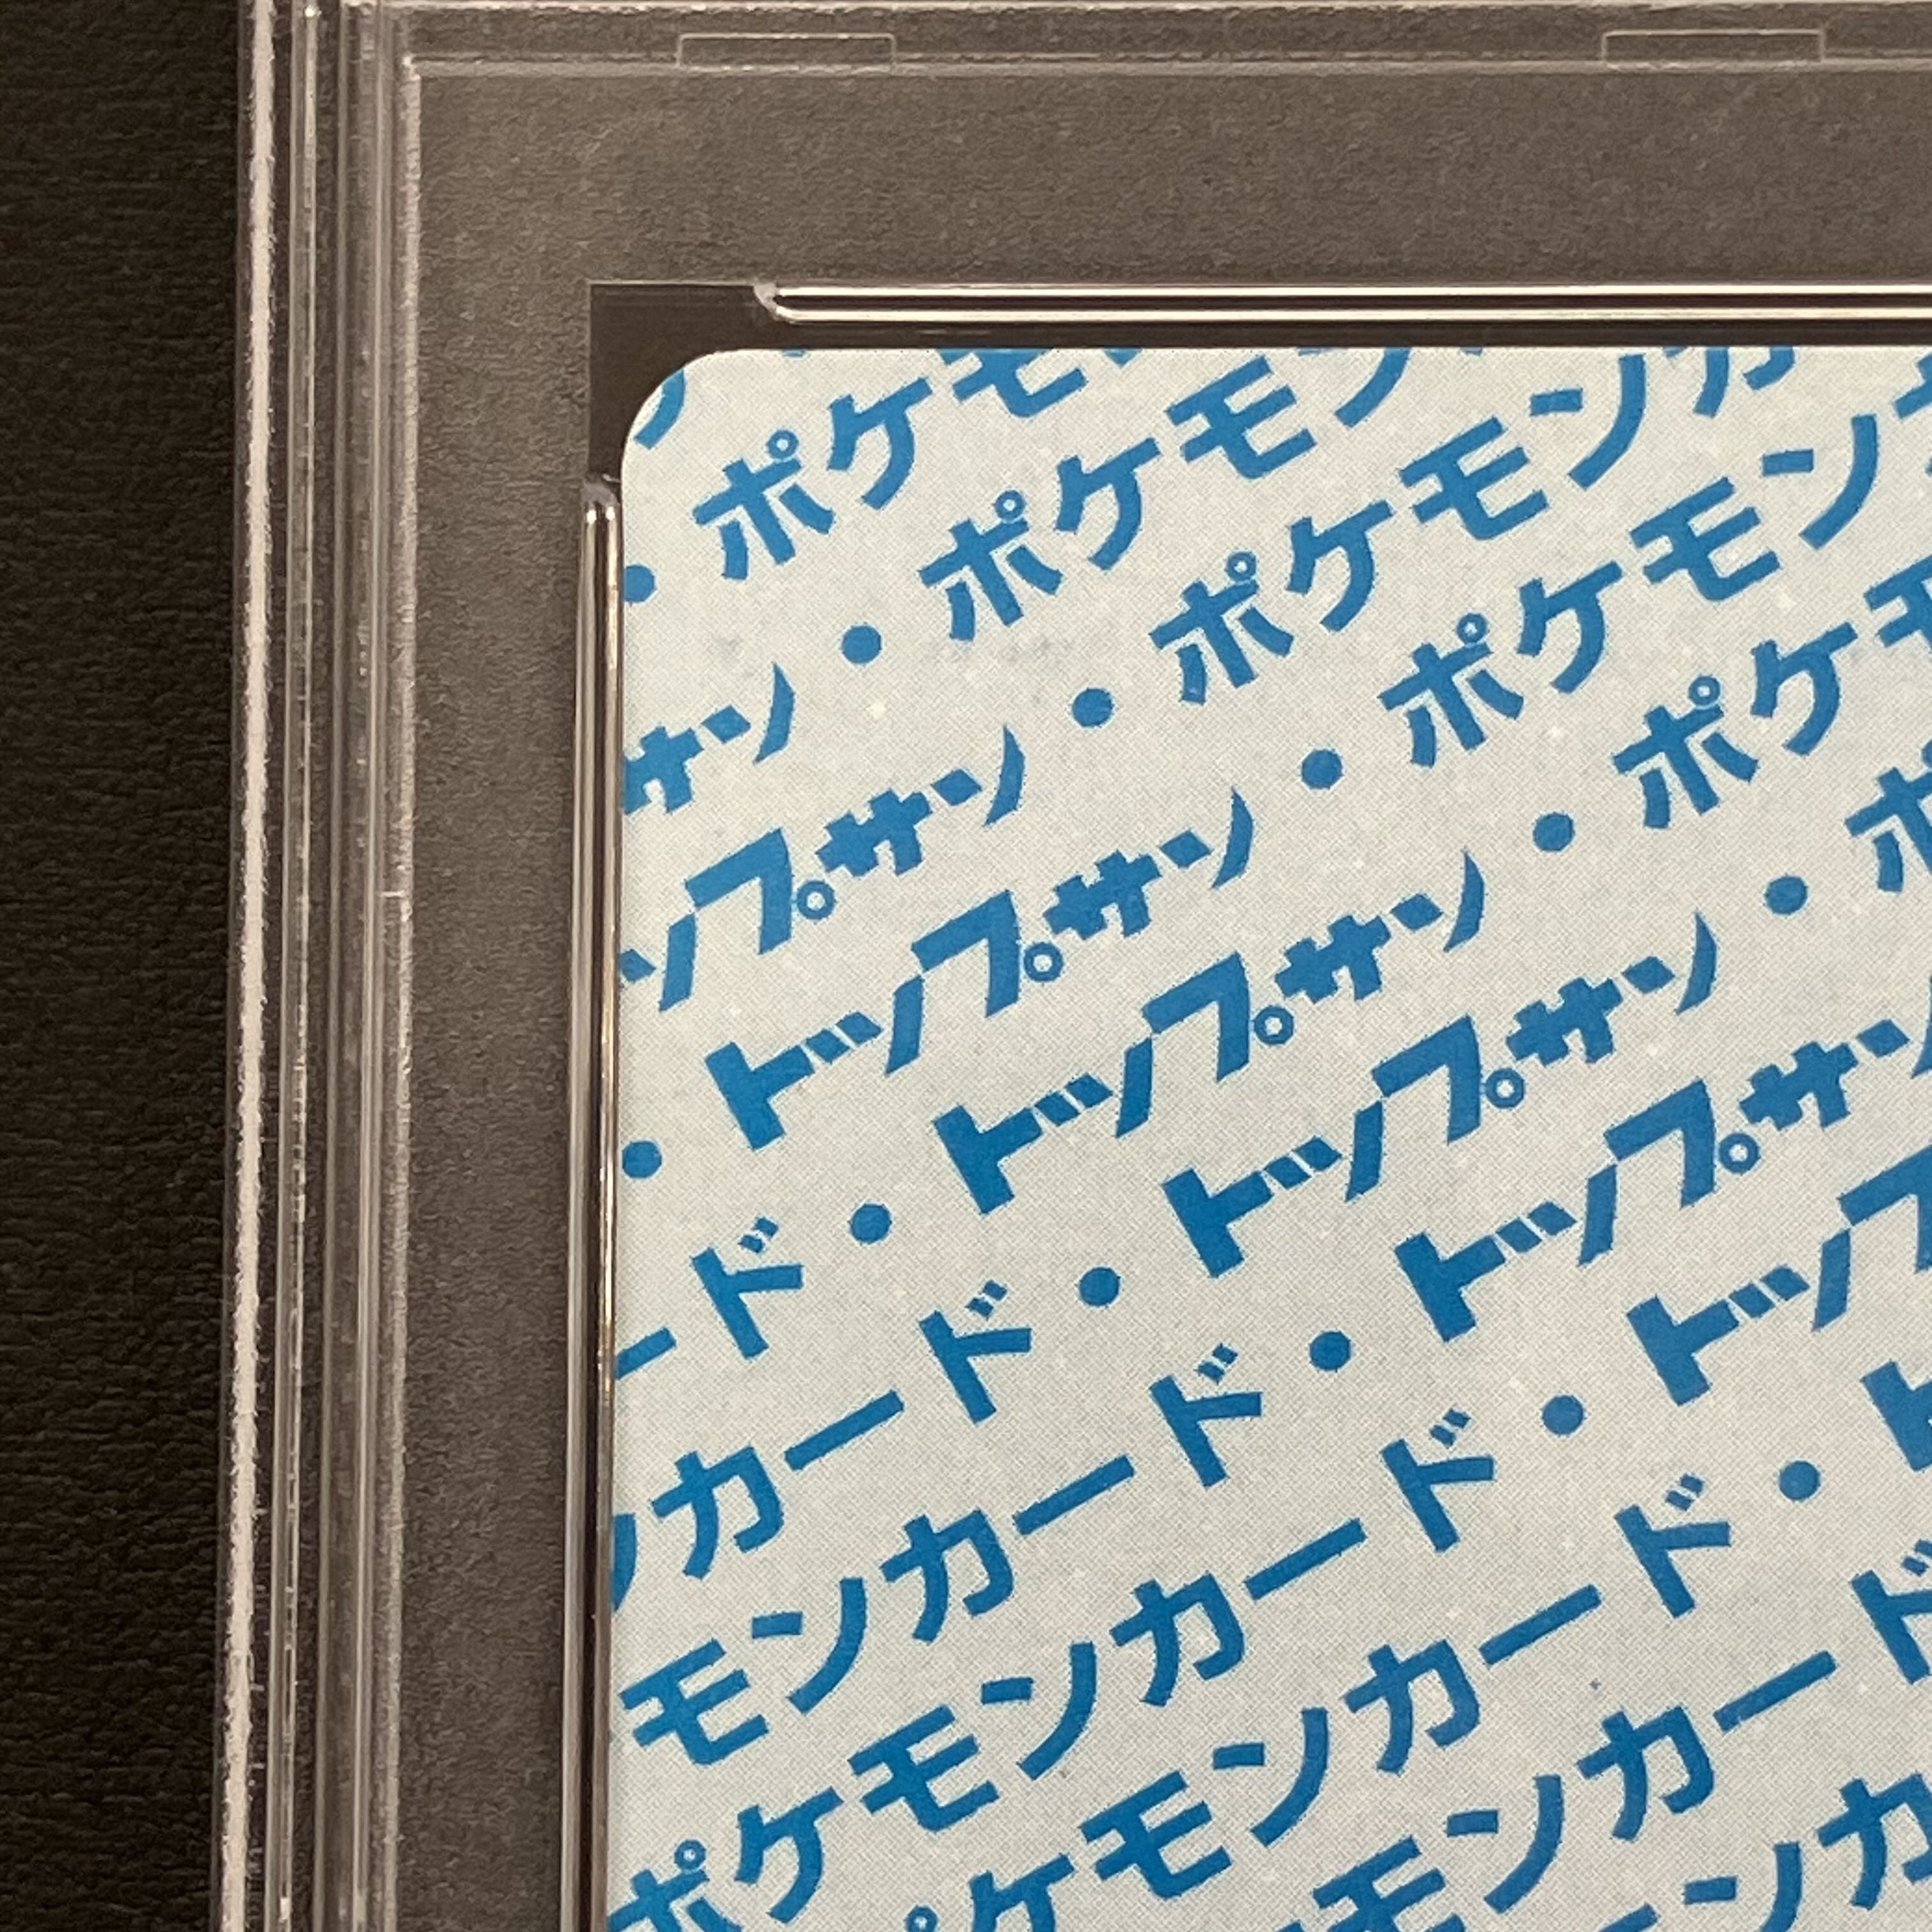 ・ポケモ
サン・ポケモン
ップサン・ポケモンカ
・トップサン・ポケモン
ード・トップサン・ポケモ
ンカード・トップサン・ポ
モンカード・トップサン
ポケモンカード・トップ
ケモンカード・ト
モンカード
ンカ